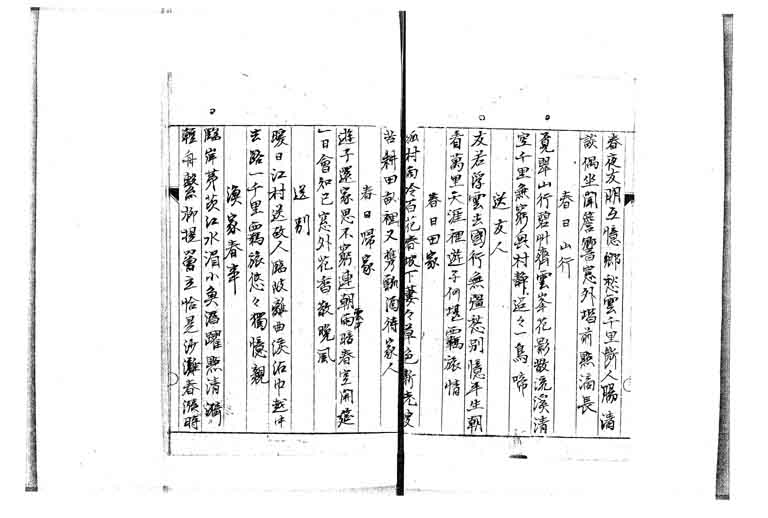 春夜友朋互憶鄉愁雲千里斷人腸清
談偶坐開簷響窓外堦前點滴長
春日山行
覓翠山行碧艸齊雲峯花影散流溪清
空千里無窮興村靜迢々一鳥啼
送友人
友若浮雲去國行無彊愁別憶平生朝
看萬里天涯裡遊子何堪羈旅情
春日田家
孤村雨冷百花春坡下萋々草色新老叟
苦耕田畝裡又携瓢酒待家人
春日歸家
遊子還家思不窮連朝雨暗春空開筵
一日會知己窓外花香散晚風
送別
暖日江村送故人臨岐離曲淚沾巾越中
去路一千里羈旅悠々獨憶親
漁家春事
臨岸茅茨江水湄小魚潑躍點清漪
輕舟繫柳提罾立恰是沙灘春漲時